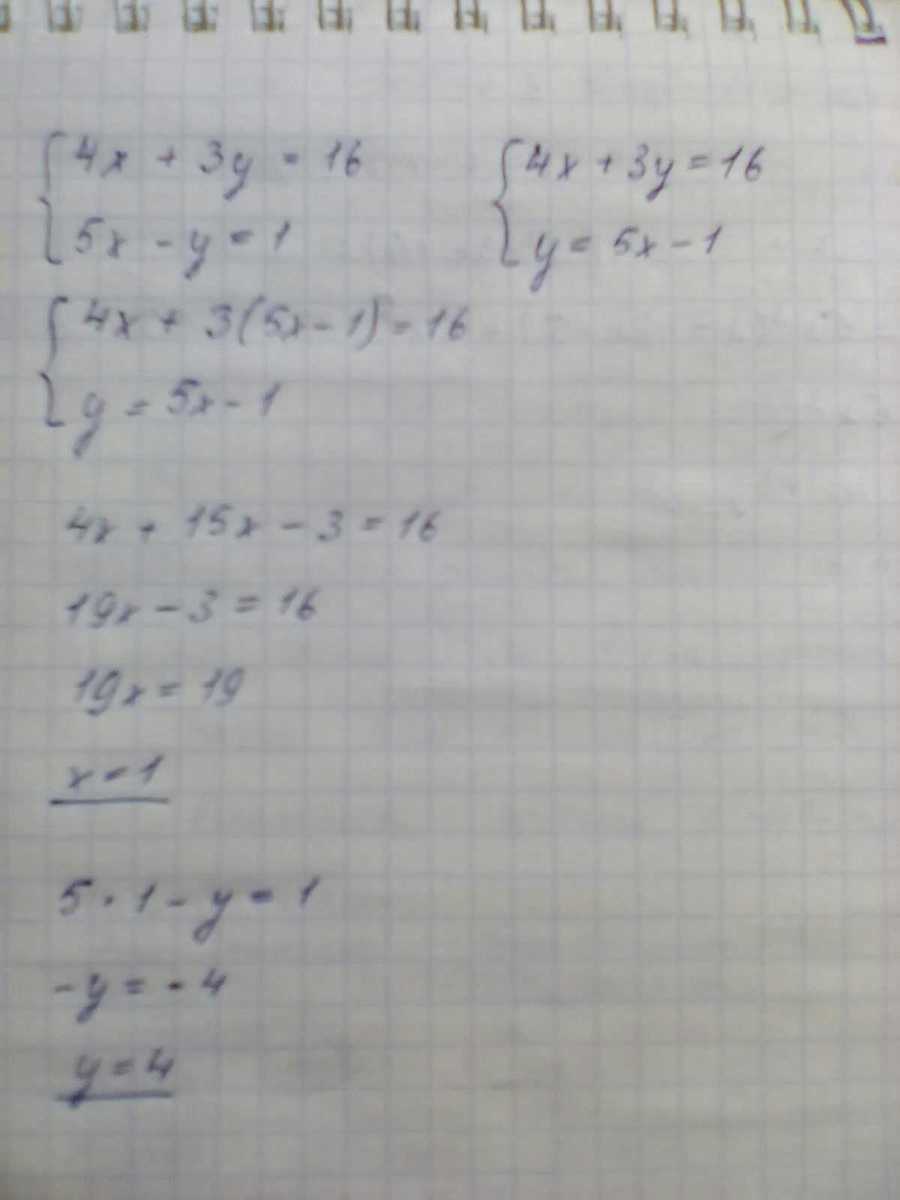 4x + 3y = 16
5x - y = 1
4x + 3y = 16
y = 5x - 1
4x + 3(5x - 1) = 16
y = 5x - 1
4x + 15x - 3 = 16
19x - 3 = 16
19x = 19
x = 1
5 · 1 - y = 1
-y = -4
y = 4